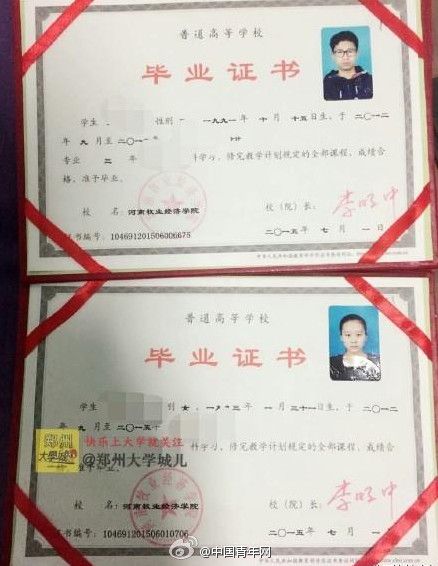 普通高等学校
毕业证书
学生 性别 一九九一年 十月 十五日生，于 二〇一二
年 九月至 二〇一
专业 三 年 科学习，修完教学计划规定的全部课程，成绩合
格，准予毕业。
校 名：河南牧业经济学院 校（院）长：李明中
证书编号：104691201506006675 二〇一五年 七月 一日
普通高等学校
毕业证书
学生 女， 一月三十一日生，于 二〇一二
年 九月至 二〇一五年
科学习，修完教学计划规定的全部课程，成绩合
郑州
大学城
快乐上大学就关注
@郑州大学城儿
校 名：河南牧业经济学院 校（院）长：李明中
证书编号：104691201506010706 二〇一五年 七月 一日
@中国青年网